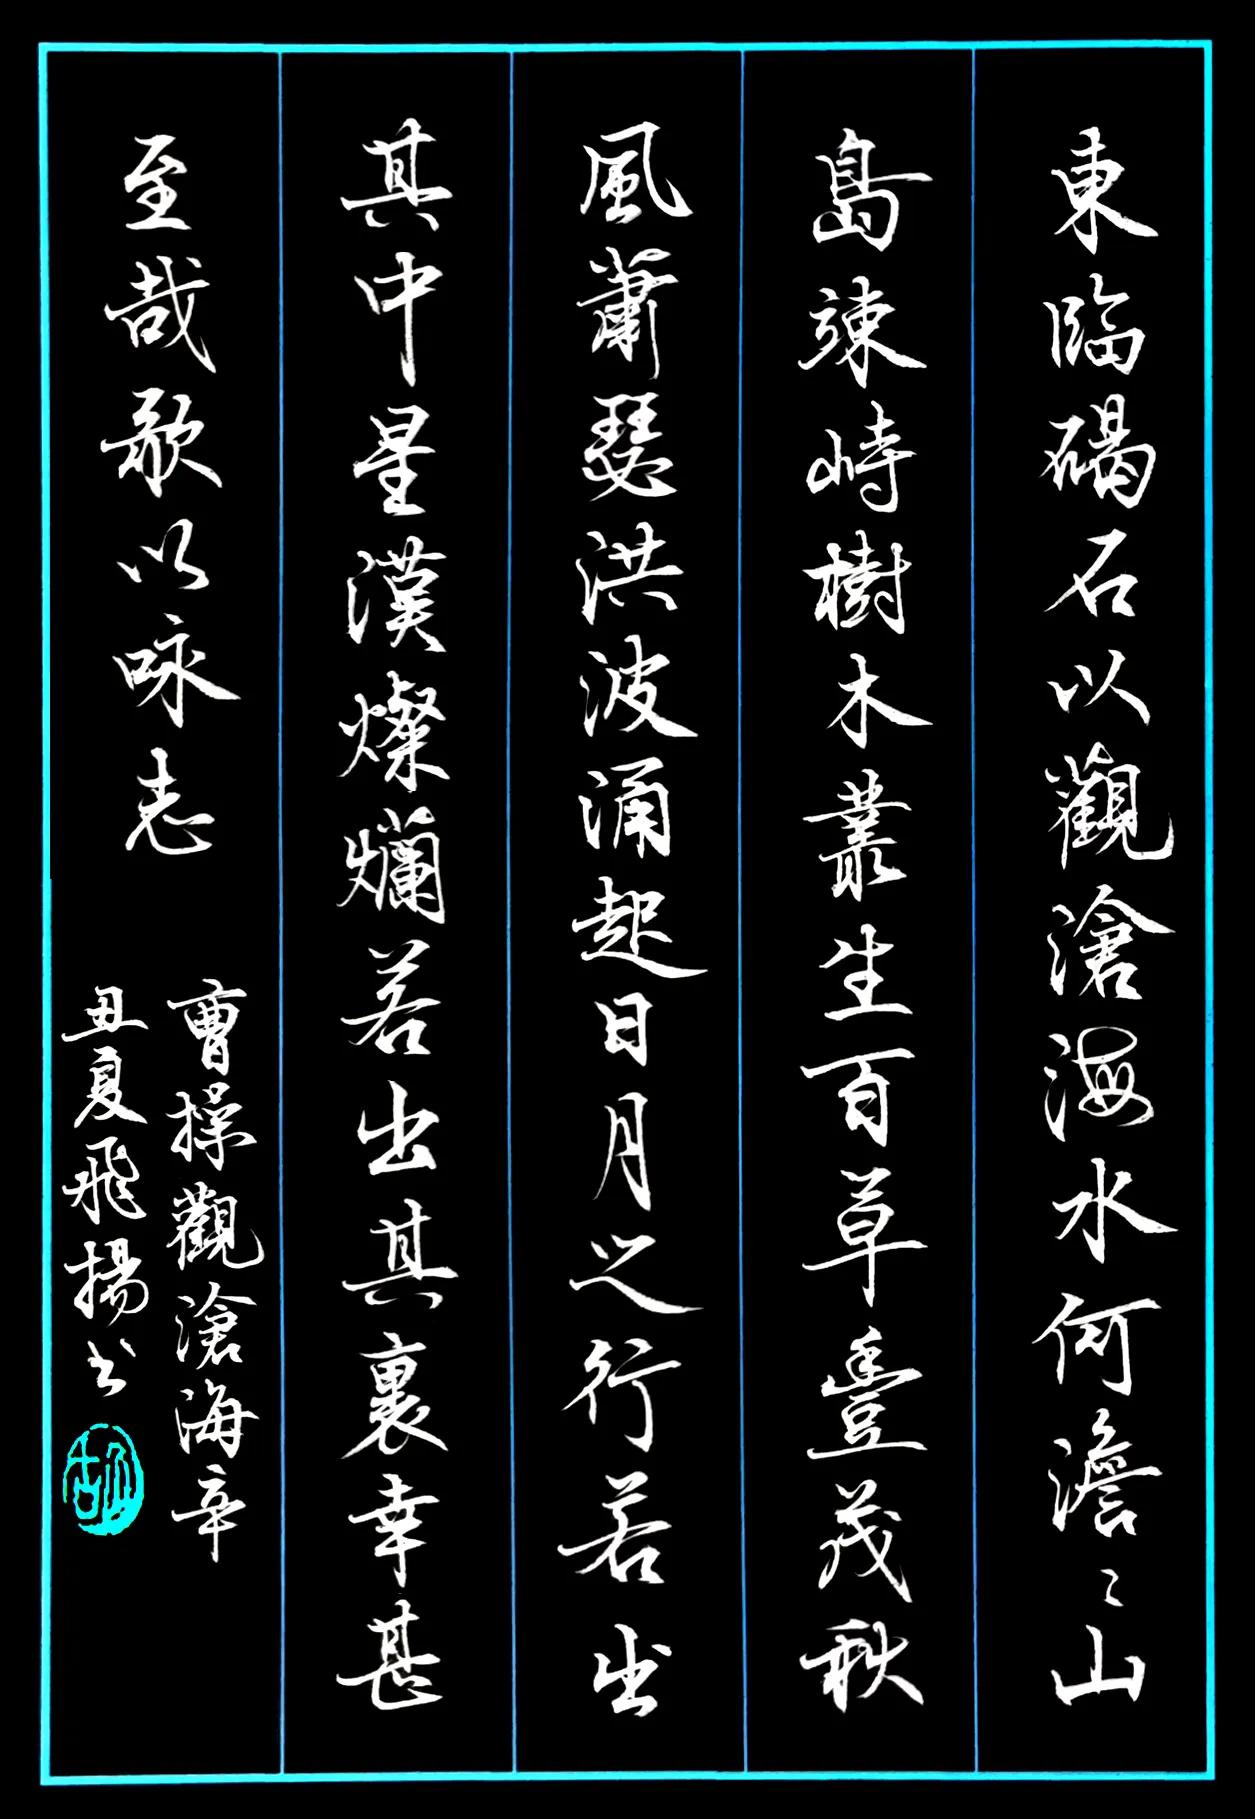 東臨碣石以觀滄海水何澹〻山
島竦峙樹木叢生百草豐茂秋
風蕭瑟洪波涌起日月之行若出
其中星漢燦爛若出其裏幸甚
至哉歌以咏志
曹操觀滄海辛
丑夏飛揚书